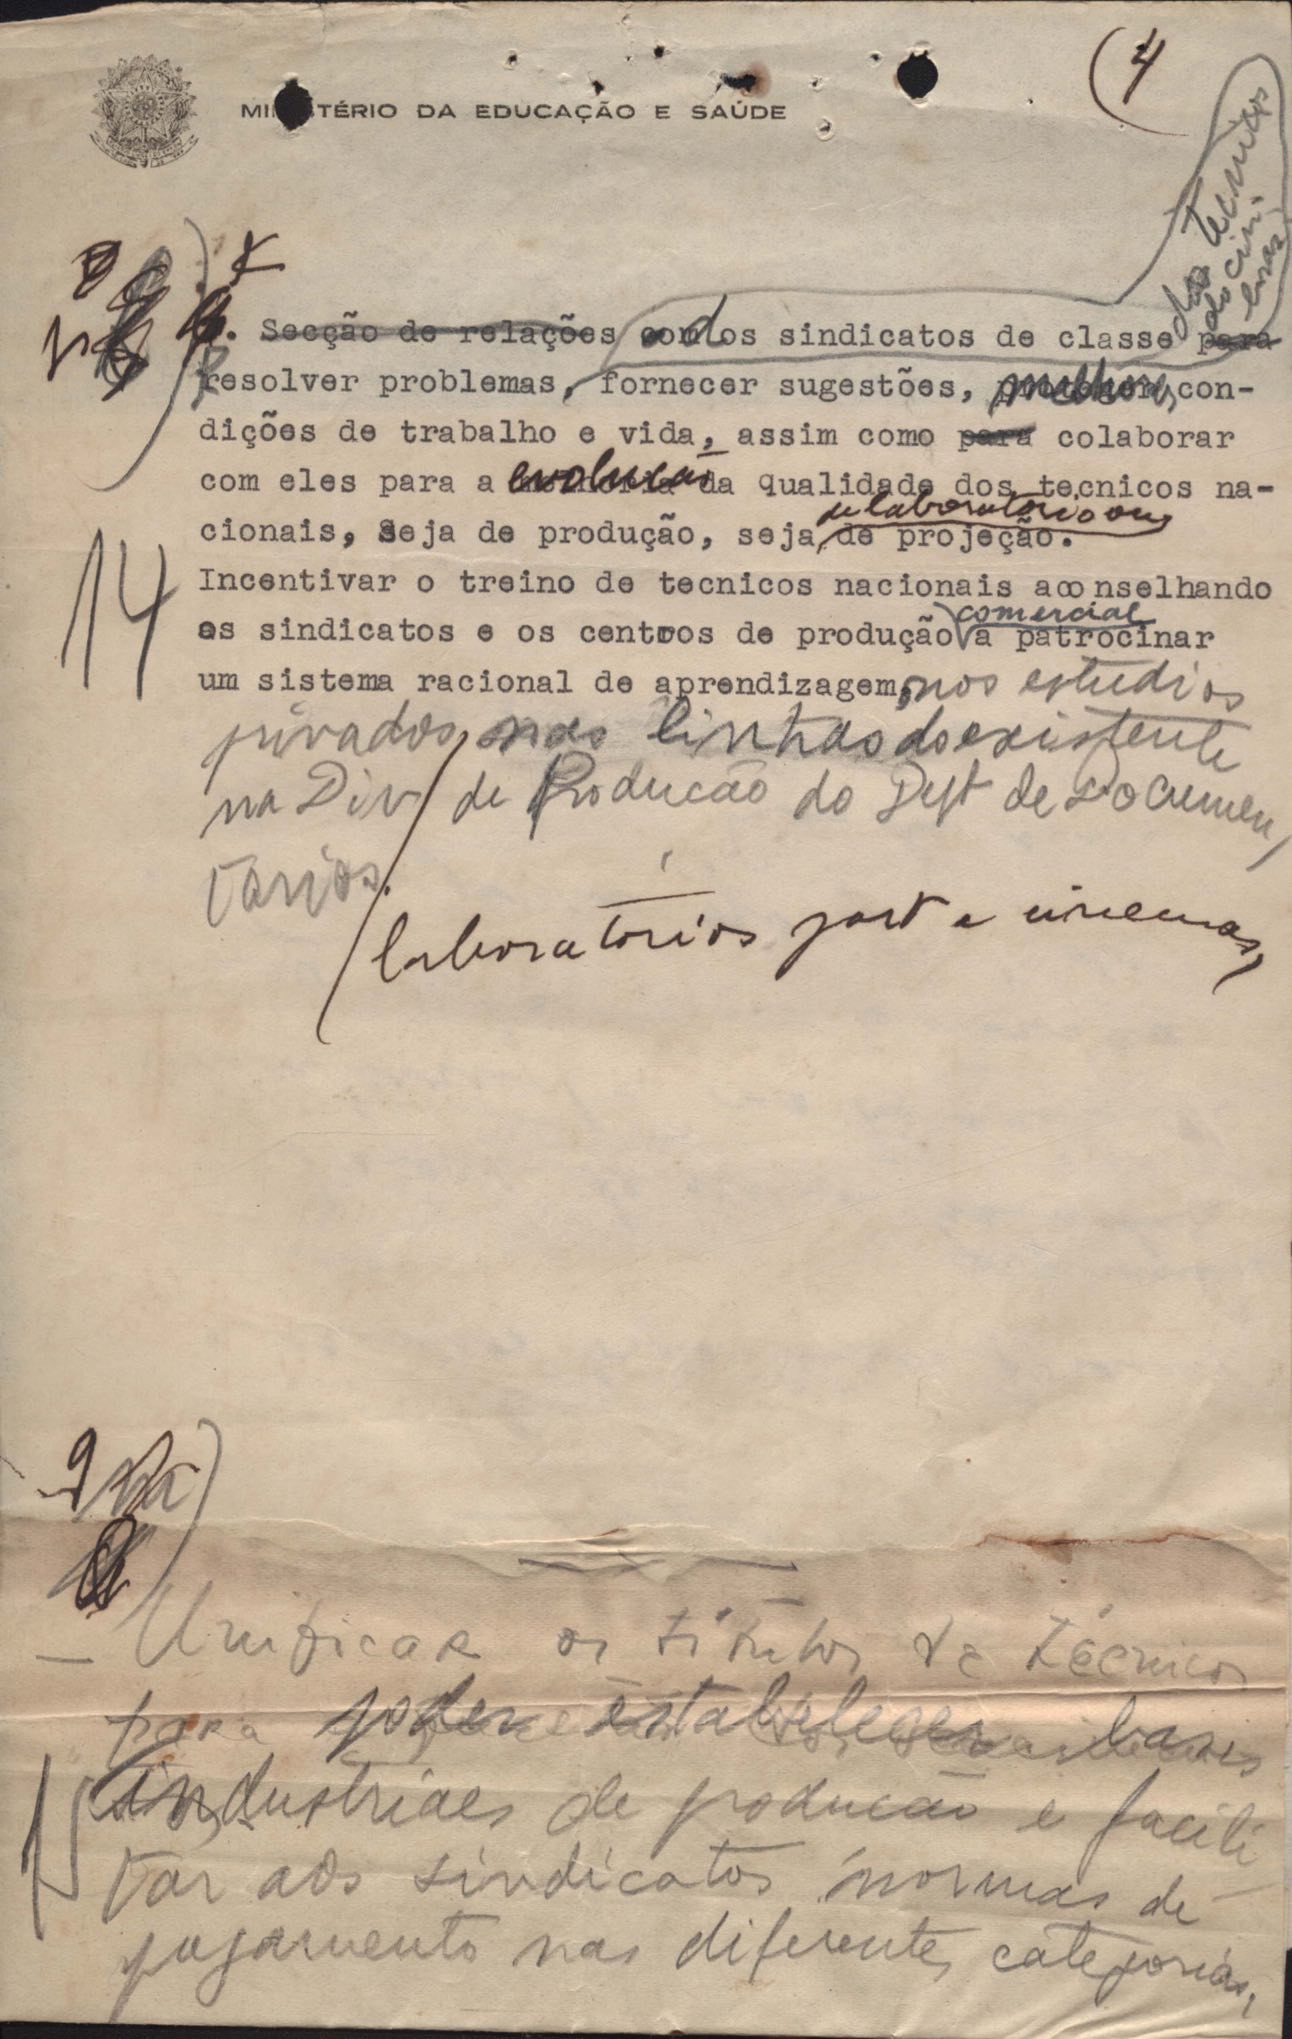 (4
MINISTÉRIO DA EDUCAÇÃO E SAÚDE
dos tecnicos
do cin.
bras.
Secção de relações dos sindicatos de classe para
Resolver problemas, fornecer sugestões, melhores con-
dições de trabalho e vida, assim como para colaborar
com eles para a evolução da qualidade dos tecnicos na-
de laboratório ou
cionais, seja de produção, seja de projeção.
14
Incentivar o treino de tecnicos nacionais aconselhando
comercial
os sindicatos e os centros de produção a patrocinar
um sistema racional de aprendizagem, nos estudios
privados, nas linhas do existente
na Div de Producão do Dept de Documen
tarios.
laboratórios part e cinemas,
9
— Unificar os titulos de técnicos
para poder estabelecer bases
15
industriaes de producão e facili
tar aos sindicatos normas de
pagamento nas diferentes categorias,